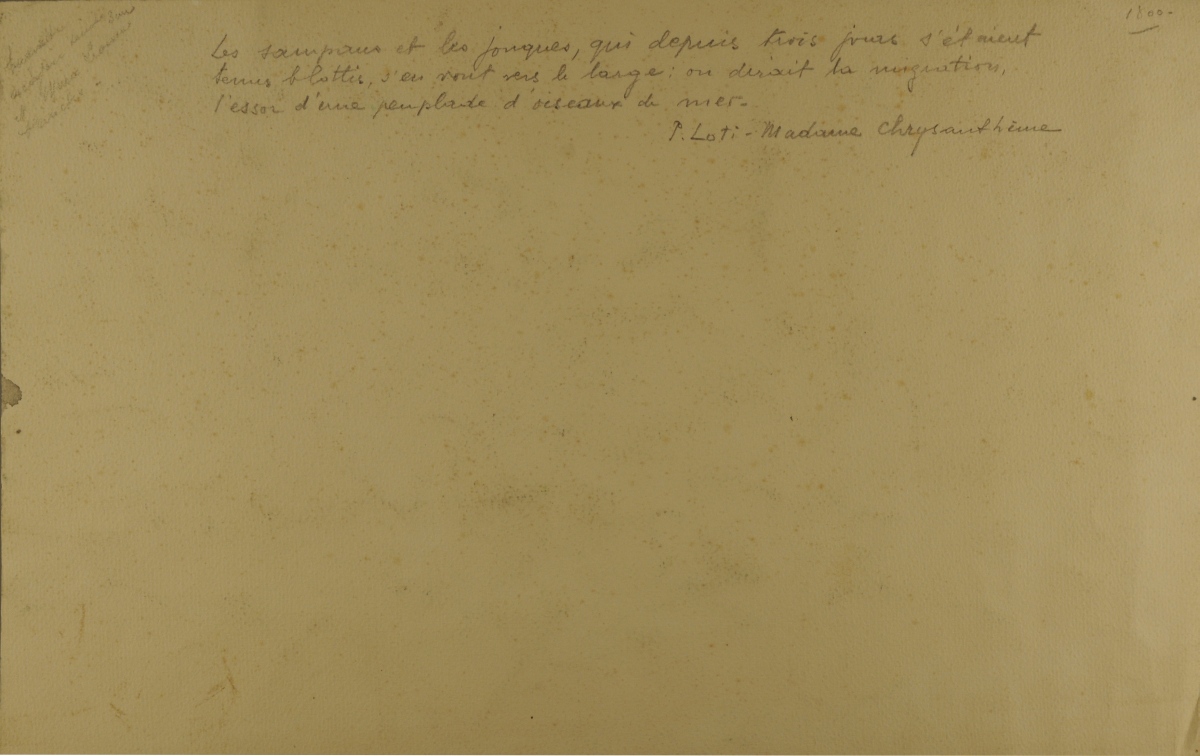 1800-
Les sampans et les jonques, qui depuis trois jours s'étaient
tenus blottis, s'en vont vers le large: on dirait la migration,
l'essor d'une peuplade d'oiseaux de mer.
P. Loti - Madame Chrysanthème